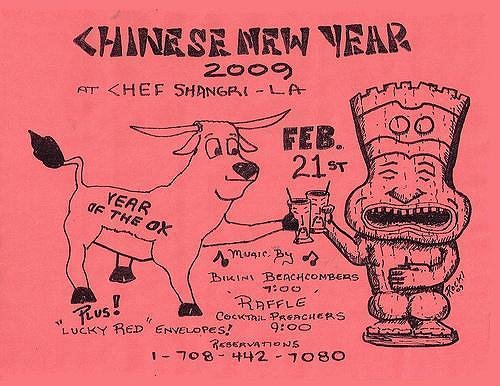 CHINESE NEW YEAR
2009
AT CHEF SHANGRI-LA
FEB.
21ST
YEAR
OF THE OX
MUSIC BY
BIKINI BEACHCOMBERS
7:00
RAFFLE
COCKTAIL PREACHERS
9:00
PLUS!
"LUCKY RED" ENVELOPES!
RESERVATIONS
1-708-442-7080